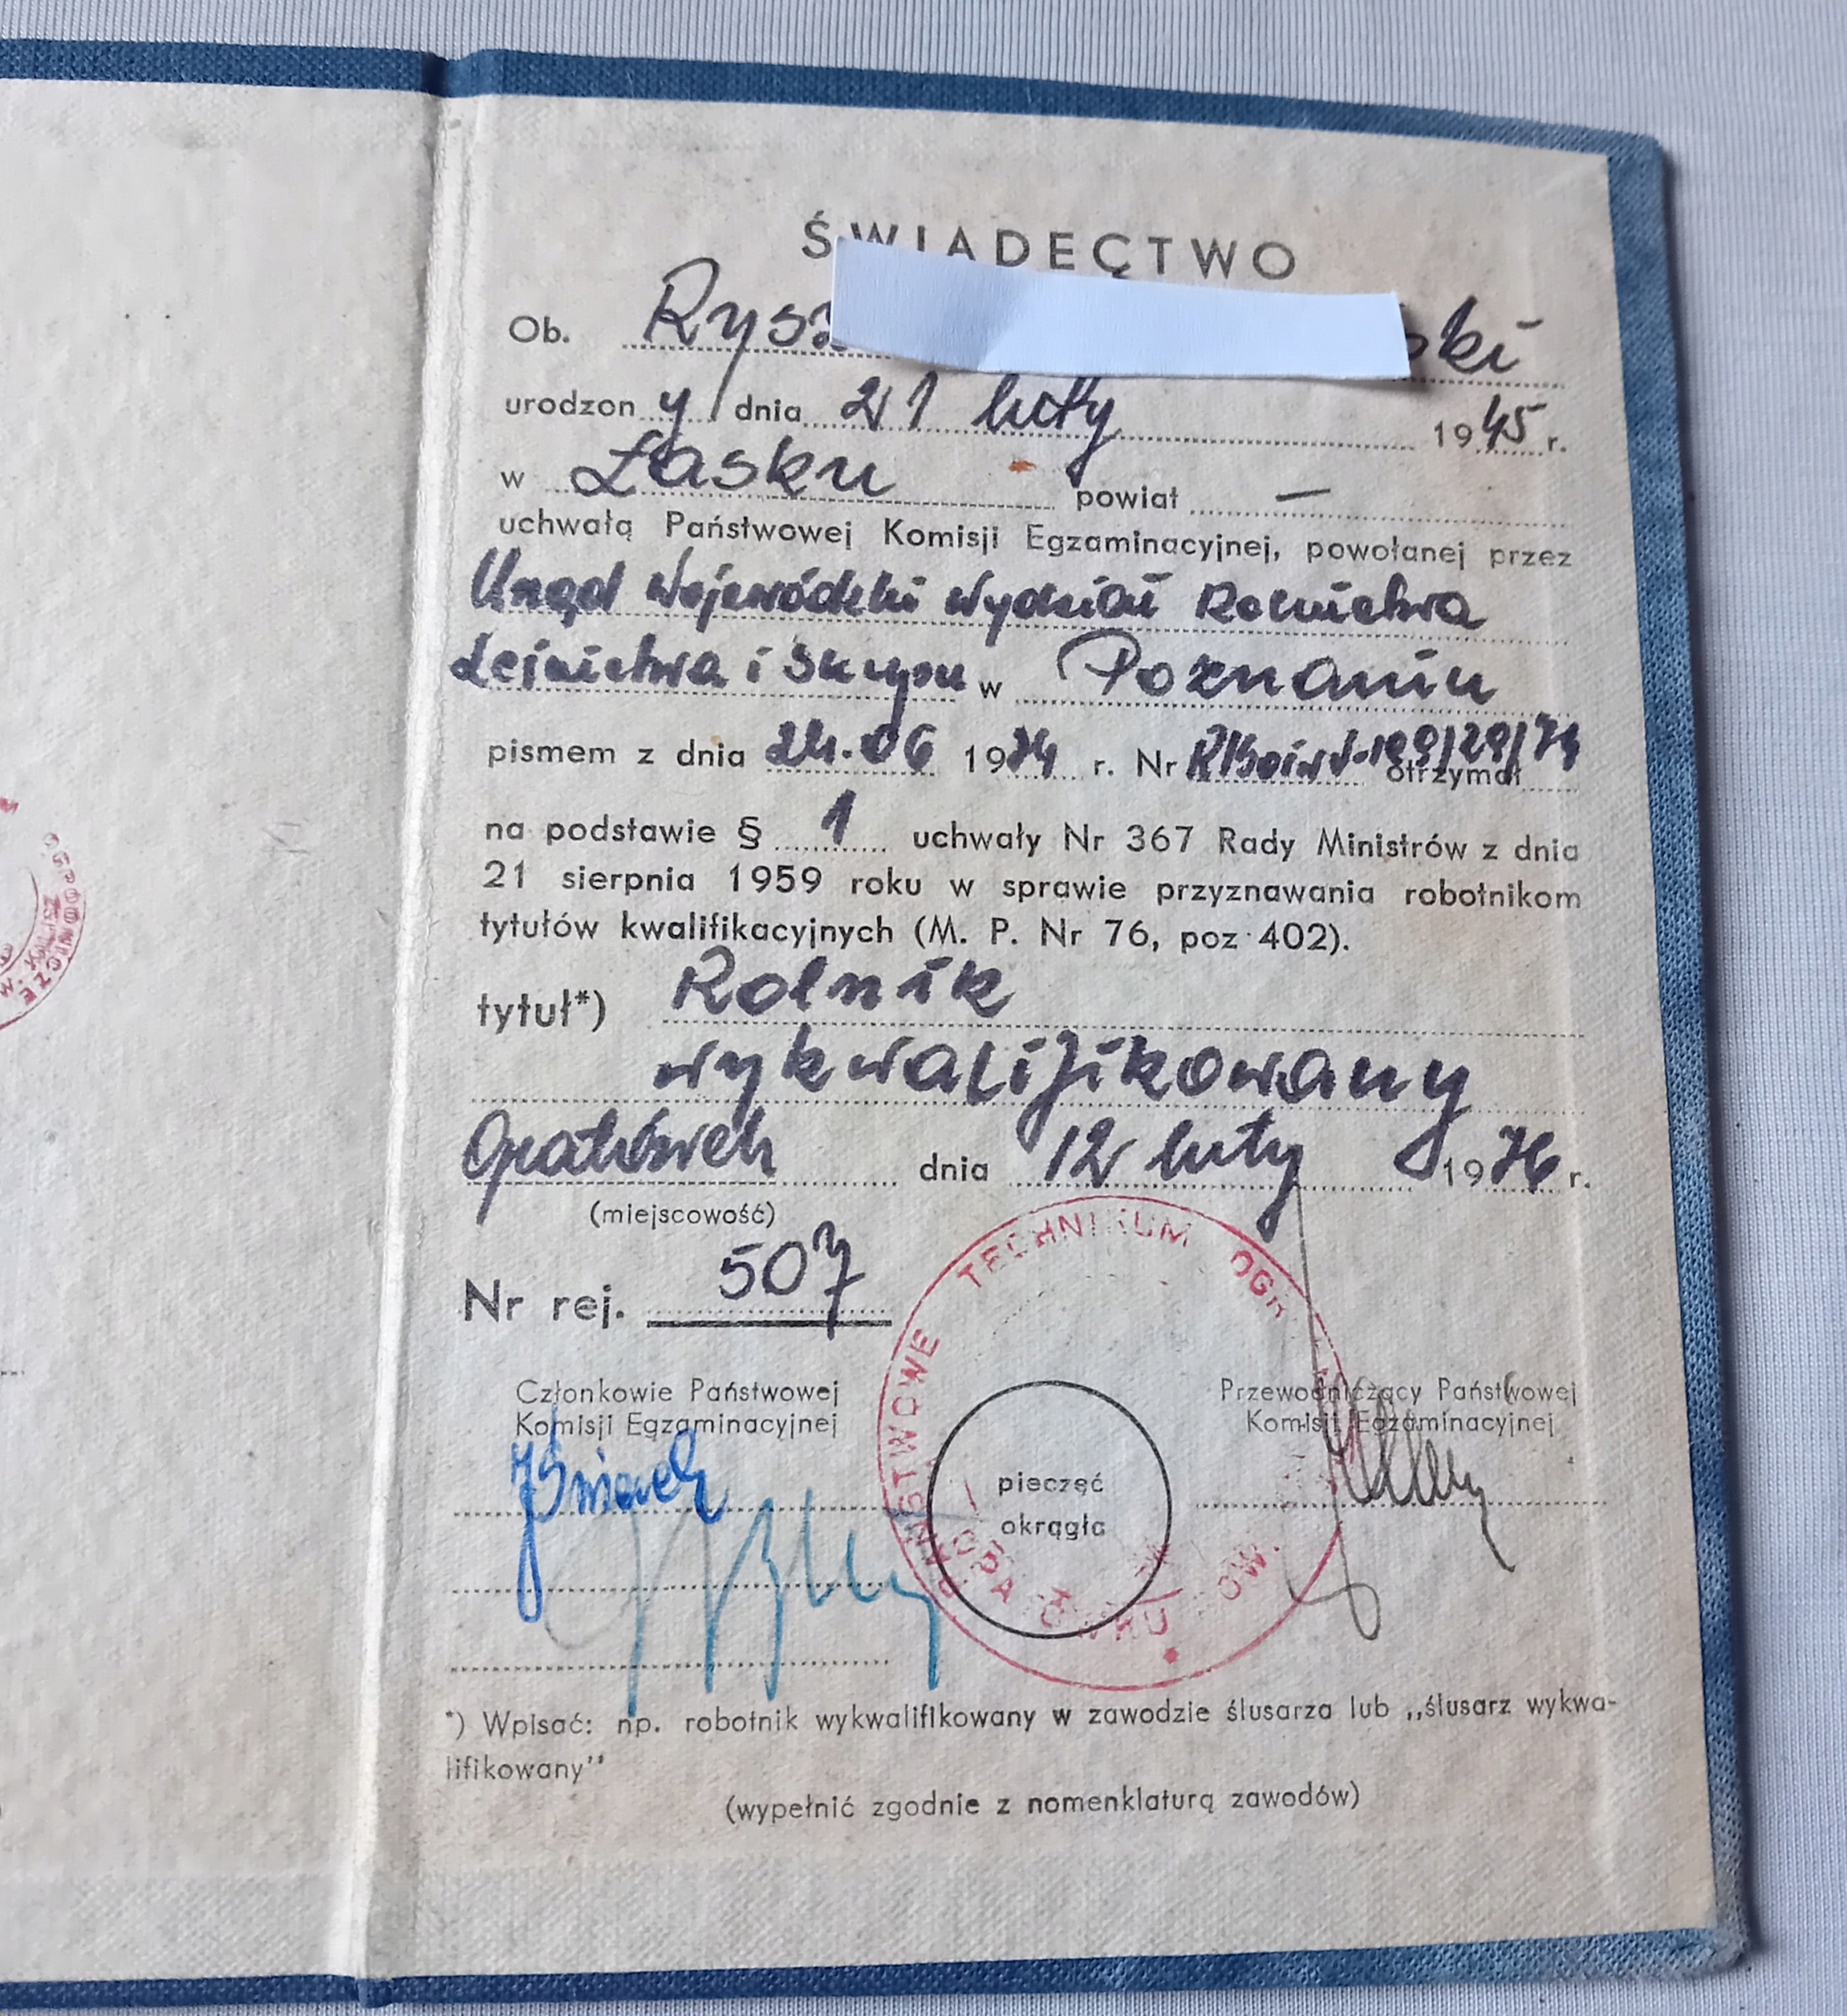 ŚWIADECTWO
Ob. Rysz ski
urodzon y dnia 21 luty 1945 r.
w Łasku powiat —
uchwałą Państwowej Komisji Egzaminacyjnej, powołanej przez
Urząd Wojewódzki Wydział Rolnictwa
Leśnictwa i Skupu w Poznaniu
pismem z dnia 24.06 1974 r. Nr otrzymał
na podstawie § 1 uchwały Nr 367 Rady Ministrów z dnia
21 sierpnia 1959 roku w sprawie przyznawania robotnikom
tytułów kwalifikacyjnych (M. P. Nr 76, poz. 402).
tytuł*) Rolnik
wykwalifikowany
Opatówek dnia 12 luty 1976 r.
(miejscowość)
Nr rej. 507
PAŃSTWOWE TECHNIKUM OGR
W OPATÓWKU
Członkowie Państwowej
Komisji Egzaminacyjnej
Przewodniczący Państwowej
Komisji Egzaminacyjnej
pieczęć
okrągła
*) Wpisać: np. robotnik wykwalifikowany w zawodzie ślusarza lub ,,ślusarz wykwa-
lifikowany''
(wypełnić zgodnie z nomenklaturą zawodów)